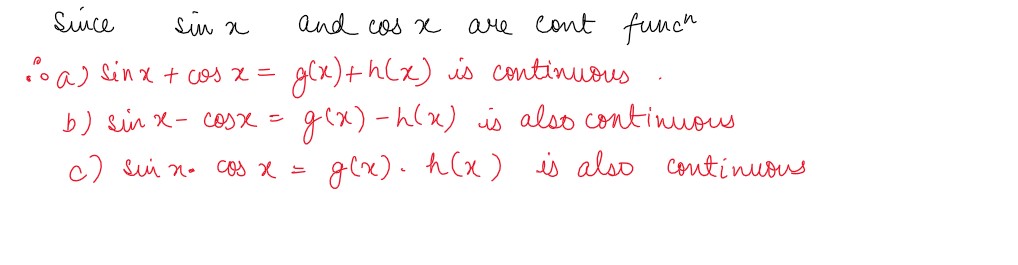 Since sin x and cos x are cont funcⁿ
∴ a) sin x + cos x = g(x) + h(x) is continuous .
b) sin x - cos x = g(x) - h(x) is also continuous
c) sin x . cos x = g(x) . h(x) is also continuous